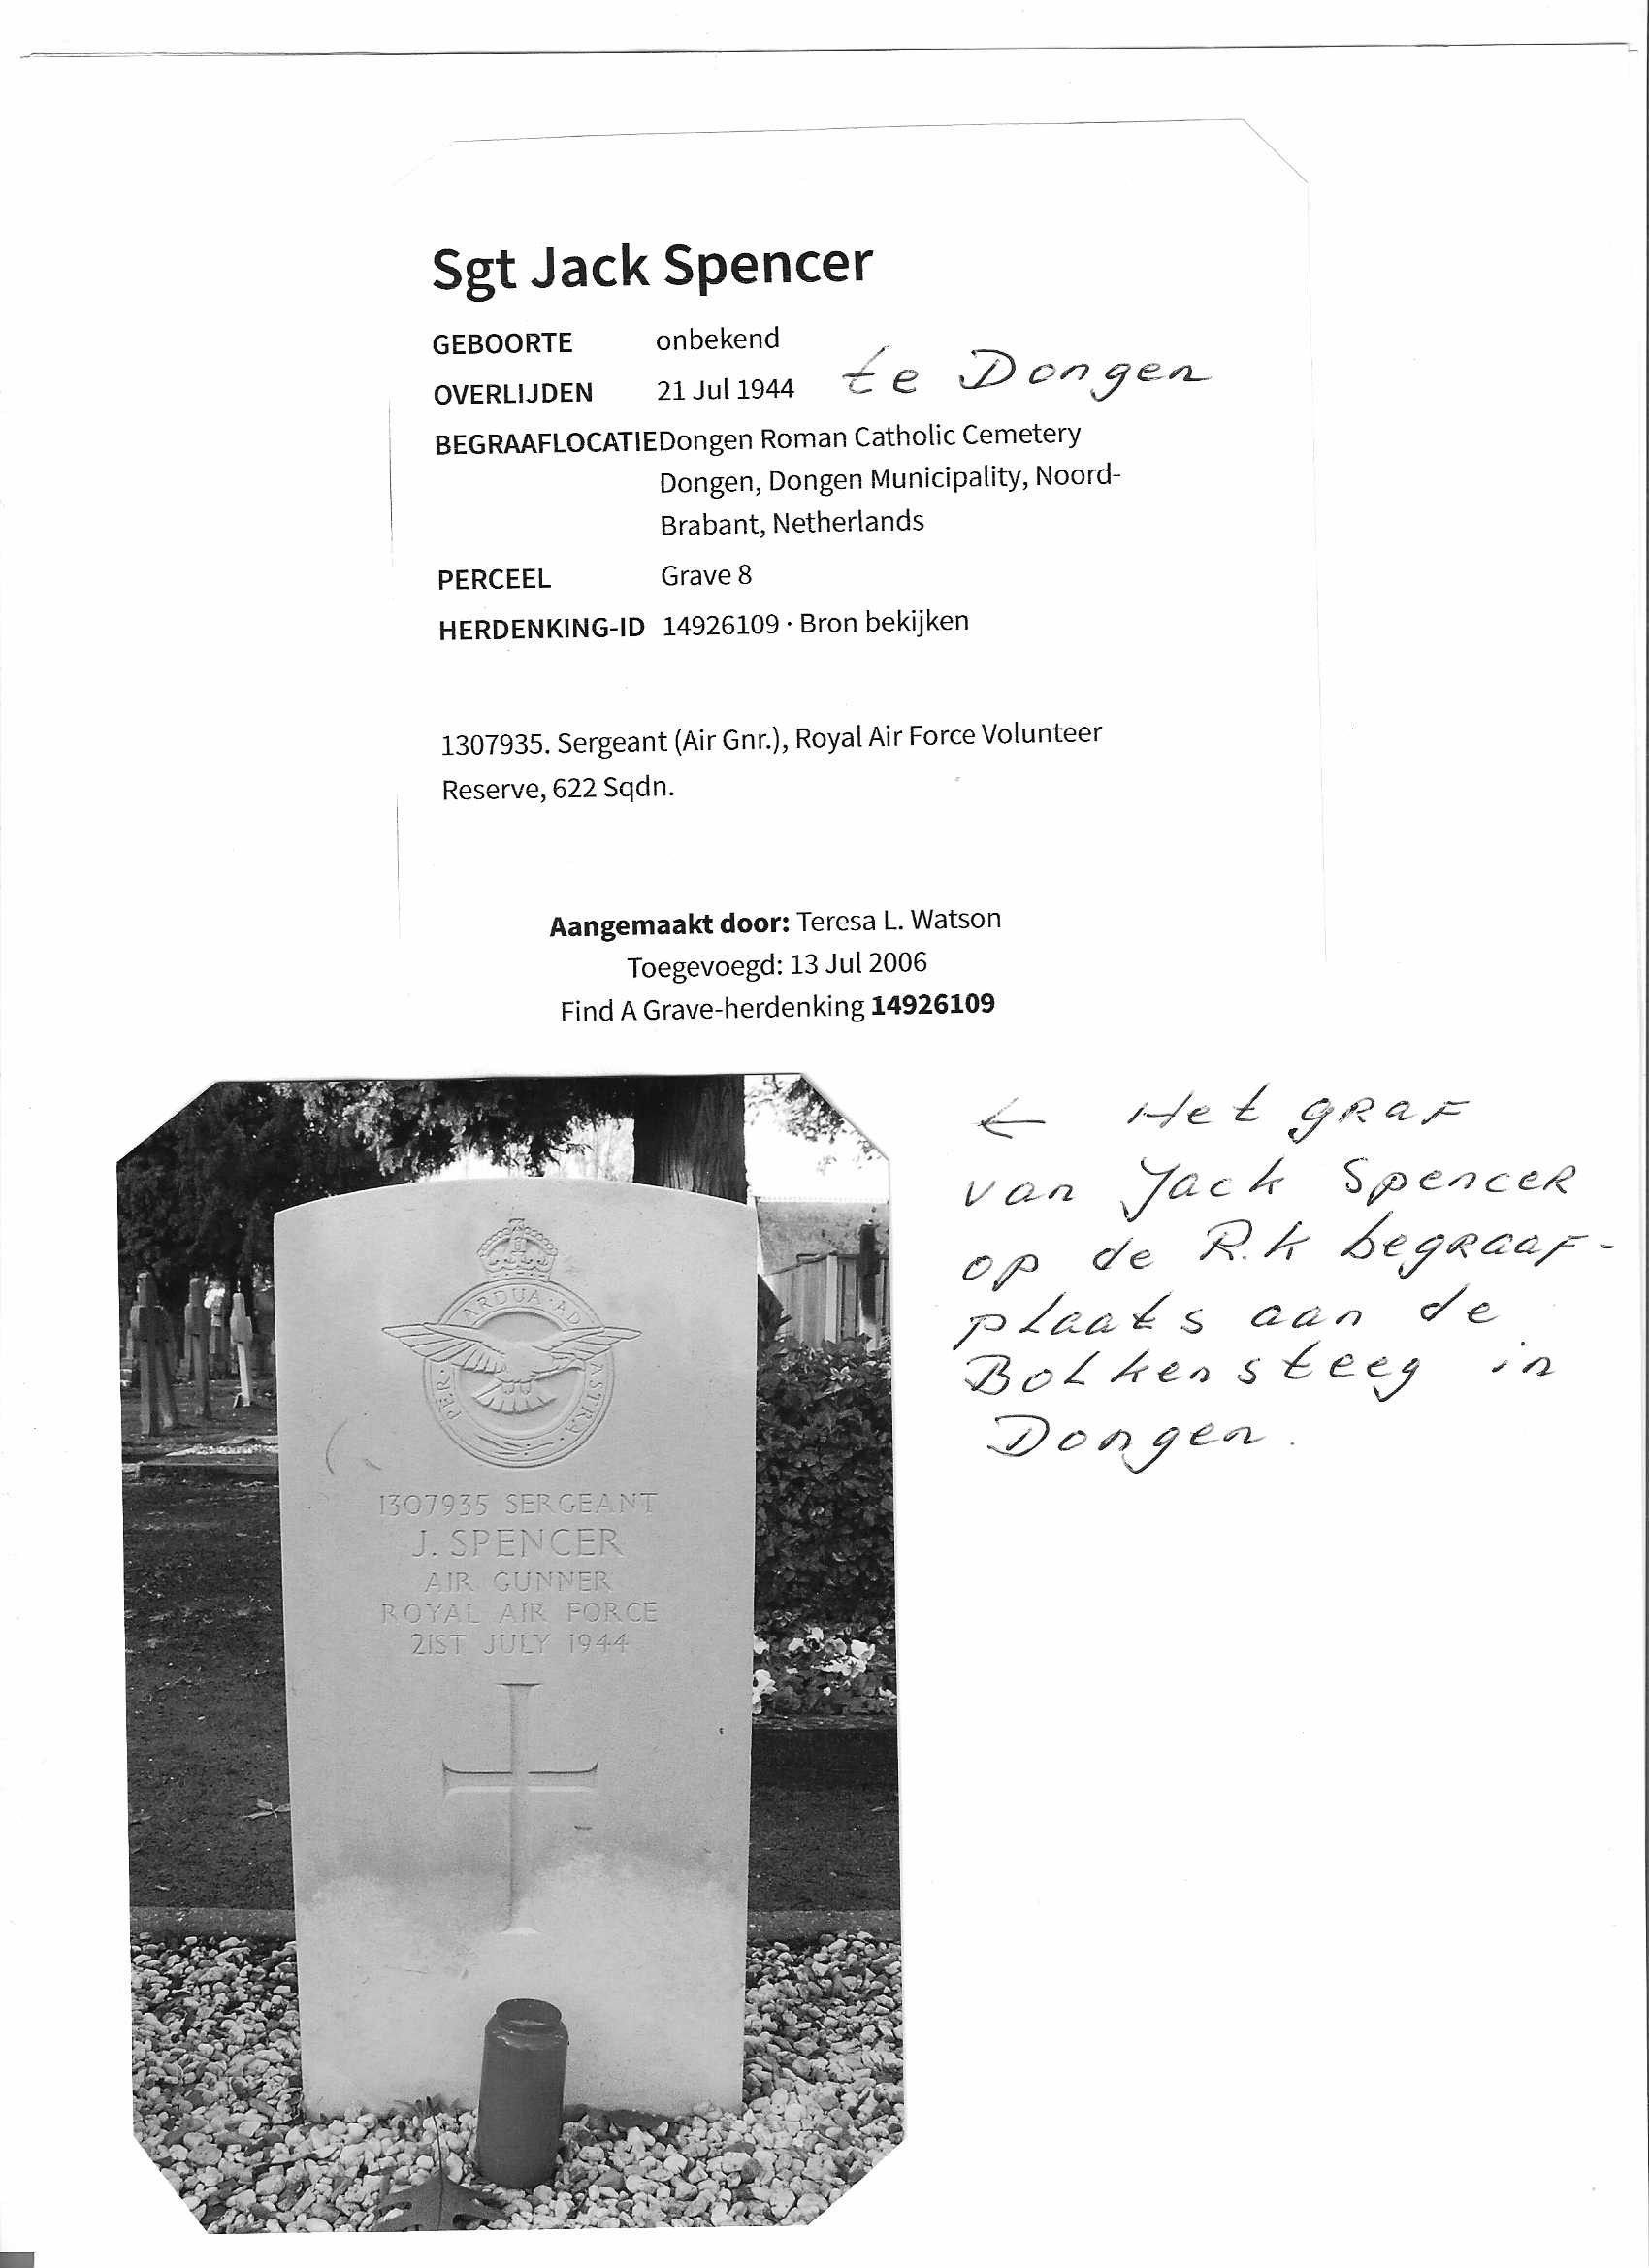 Sgt Jack Spencer
GEBOORTE onbekend
OVERLIJDEN 21 Jul 1944 te Dongen
BEGRAAFLOCATIE Dongen Roman Catholic Cemetery
Dongen, Dongen Municipality, Noord-
Brabant, Netherlands
PERCEEL Grave 8
HERDENKING-ID 14926109 · Bron bekijken
1307935. Sergeant (Air Gnr.), Royal Air Force Volunteer
Reserve, 622 Sqdn.
Aangemaakt door: Teresa L. Watson
Toegevoegd: 13 Jul 2006
Find A Grave-herdenking 14926109
← Het graf
van Jack Spencer
op de R.k begraaf-
plaats aan de
Bolkensteeg in
Dongen.
PER · ARDUA · AD ASTRA
1307935 SERGEANT
J. SPENCER
AIR GUNNER
ROYAL AIR FORCE
21ST JULY 1944